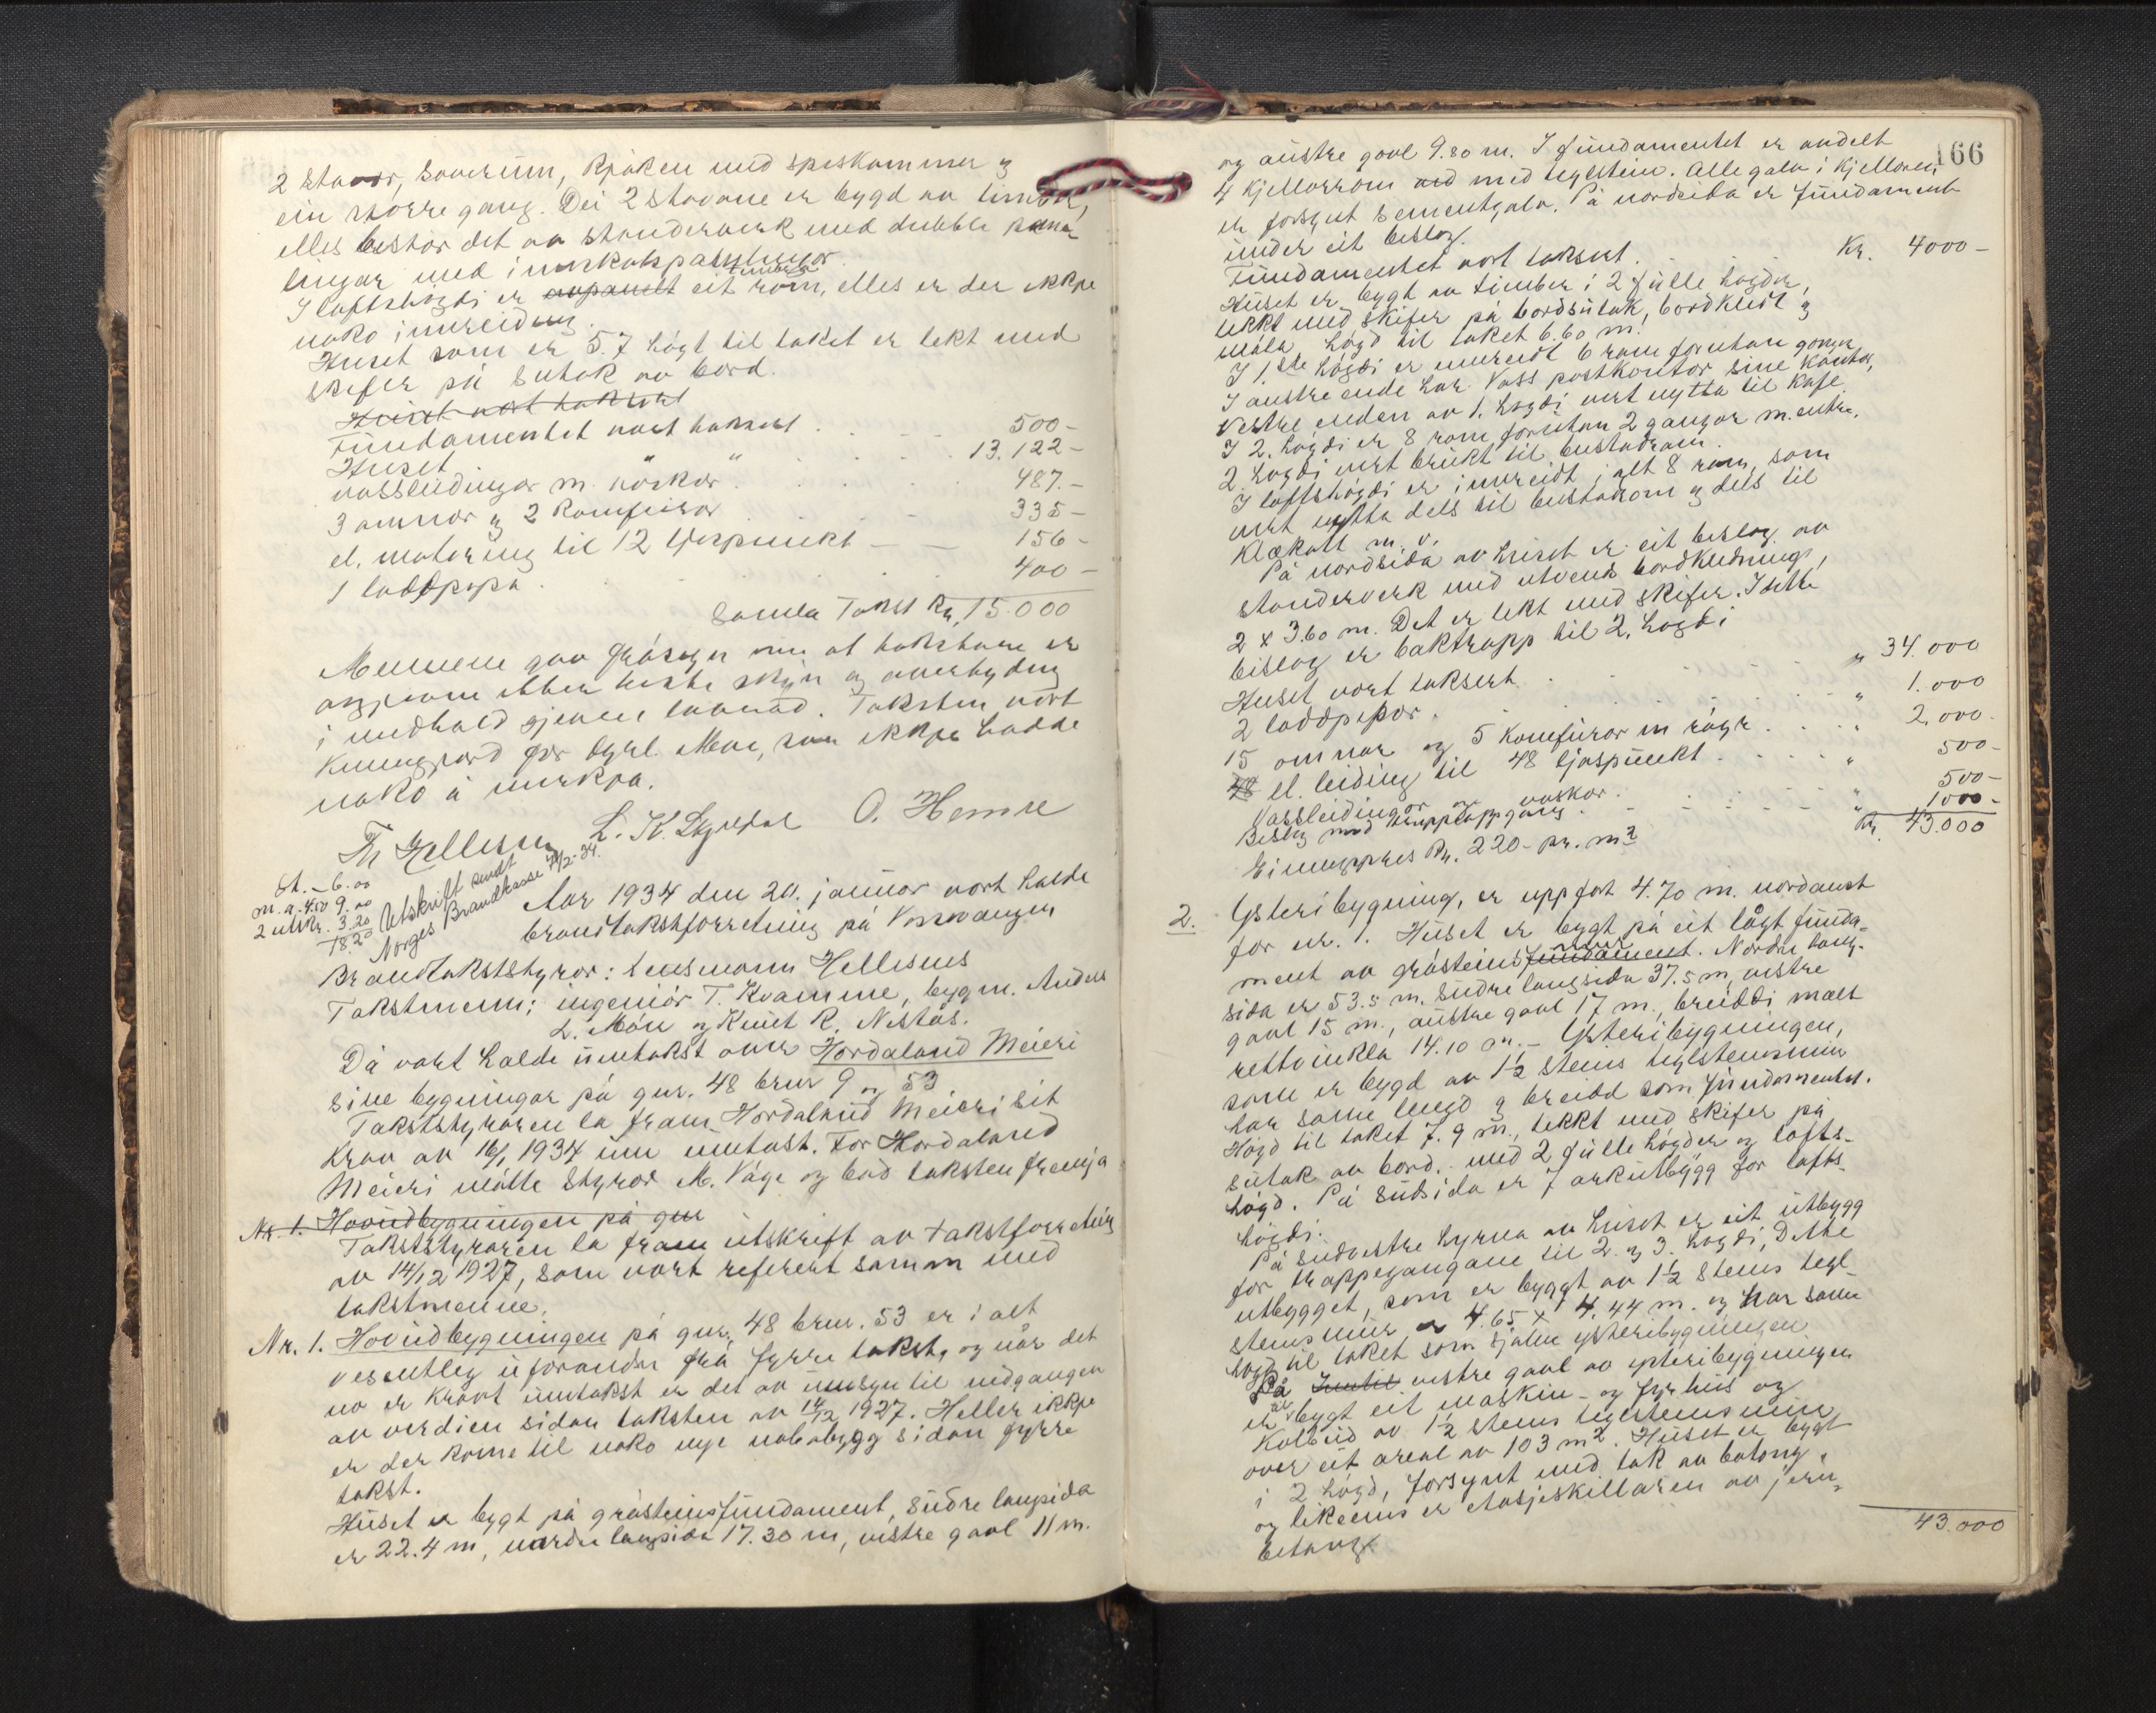 2 stovor, soverum, kjøken med spiskammer og
ein større gang. Dei 2 stovone er bygd av timber,
elles består det av standerverk med dubble pane-
lingar med imellom
I loftshøgdi er avpanelt eit timbra rom, elles er der ikkje
noko innreiding.
Huset som er 5.7 høgt til taket er tekt med
skifer på sutak av bord.
Huset vert taksert
Fundamentet vart taksert . . . 500-
Huset " " . . . 13.122-
vassleidingar m. vaskar . . . 487.-
3 omnar og 2 komfurar . . . 335-
el. montering til 12 ljospunkt — — 156-
1 loddpipa . . . 400-
Samla Takst kr. 15.000
Mennene gav fråsegn um at takstane er
avgjevne etter beste skjøn og overtyding
i medhald gjevne lovnad. Taksten vart
kunngjord for Sjur Moe, som ikkje hadde
noko å merkja.
Th Hellesnes L. K. Skjeldal O. Hemre
St. - 6.00
m. a. 4.50 9.00
2 utskr. 3.20
18.20
Utskrift sendt
Norges Brandkasse 7/2-34.
Aar 1934 den 20. januar vart halde
brandtakstforretning på Vossevangen
Brandtakststyrar: lensmann Hellesnes
Takstmenn: ingeniør T. Kvamme, bygm. Anders
L. Møn og Knut R. Nestås.
Då vart halde umtakst over Hordaland Meieri
sine bygningar på gnr. 48 brnr 9 og 53.
Takststyraren la fram Hordaland Meieri sit
krav av 16/1 1934 um umtakst. For Hordaland
Meieri møtte styrar M. Våge og bad taksten fremja
Nr. 1. Hovudbygningen på gnr
Takststyraren la fram utskrift av takstforretning
av 14/12 1927, som vart referert saman med
takstmennene.
Nr. 1. Hovudbygningen på gnr. 48 brnr. 53 er i alt
vesentleg uforandra frå fyrre takst, og når det
no er kravt umtakst er det av umsyn til nedgangen
av verdien sidan taksten av 14/12 1927. Heller ikkje
er der kome til noko nye nabobygg sidan fyrre
takst.
Huset er bygt på gråsteinsfundament, sudre langsida
er 22.4 m, nordre langsida 17.30 m, vestre gavl 11 m.
166
og austre gavl 9.80 m. I fundamentet er avdelt
4 kjellarrom ved med teglstein. Alle golv i kjellaren
er forsynt sementgolv. På nordsida er fundament
under eit bislag.
Fundamentet vart taksert . Kr. 4000-
Huset er bygt av timber i 2 fulle høgder,
tekkt med skifer på bordsutak, bordkledt og
måla. høgd til taket 6.60 m.
I 1.ste høgdi er innreidt 6 rom forutan gonger
I austre ende har Voss postkontor sine kontor,
vestre enden av 1. høgdi vert nytta til kafe.
I 2. høgdi er 8 rom, forutan 2 gangar m. entre.
2. høgdi vert brukt til bustadrom.
I loftshøgdi er innreidt i alt 8 rom, som
vert nytta dels til bustadrom og dels til
klækott m. v.
På nordsida av huset er eit bislag av
standerverk med utvendi bordkledning,
2 x 3.60 m. Det er tekt med skifer. I dette
bislag er baktrapp til 2. høgdi
Huset vart taksert . . . " 34.000
2 loddpipor . . . " 1.000
15 omnar og 5 komfurar m røyr . . . " 2.000.
48 el. leiding til 48 ljospunkt . . . " 500-
Vassleidingar og vaskar . . . " 500-
Bislag med trappoppgang . . . " 1000-
Kr. 43.000
Einingspris kr. 220- pr. m2
2. Ysteribygning, er uppført 4.70 m. nordaust
for nr. 1. Huset er bygt på eit lågt funda-
ment av gråsteinsfundament mur. Nordre lang-
sida er 53.5 m. sudre langsida 37.5 m, vestre
gavl 15 m., austre gavl 17 m., breiddi mælt
rettvinkla 14.10 m.- Ysteribygningen,
som er bygd av 1½ steins teglsteinsmur
har same lengd og breidd som fundamentet.
Høgd til taket 7.9 m., tekkt med skifer på
sutak av bord, med 2 fulle høgder og lofts-
høgd. På sudsida er 7 arkutbygg for lofts-
høgdi.
På sudvestre hyrna av huset er eit utbygg
for trappegangane til 2. og 3. høgdi, Dette
utbygget, som er byggt av 1½ steins tegl-
steinsmur er 4.65 x 4.44 m. og har same
høgd til taket som sjølve ysteribygningen
På Inntil vestre gavl av ysteribygningen
er bygt eit maskin- og fyrhus og
kolbud av 1½ steins teglsteinsmur
over eit areal av 103 m2. Huset er bygt
i 2 høgd, forsynt med tak av betong,
og likeeins er etasjeskillaren av jern-
betong.
43.000